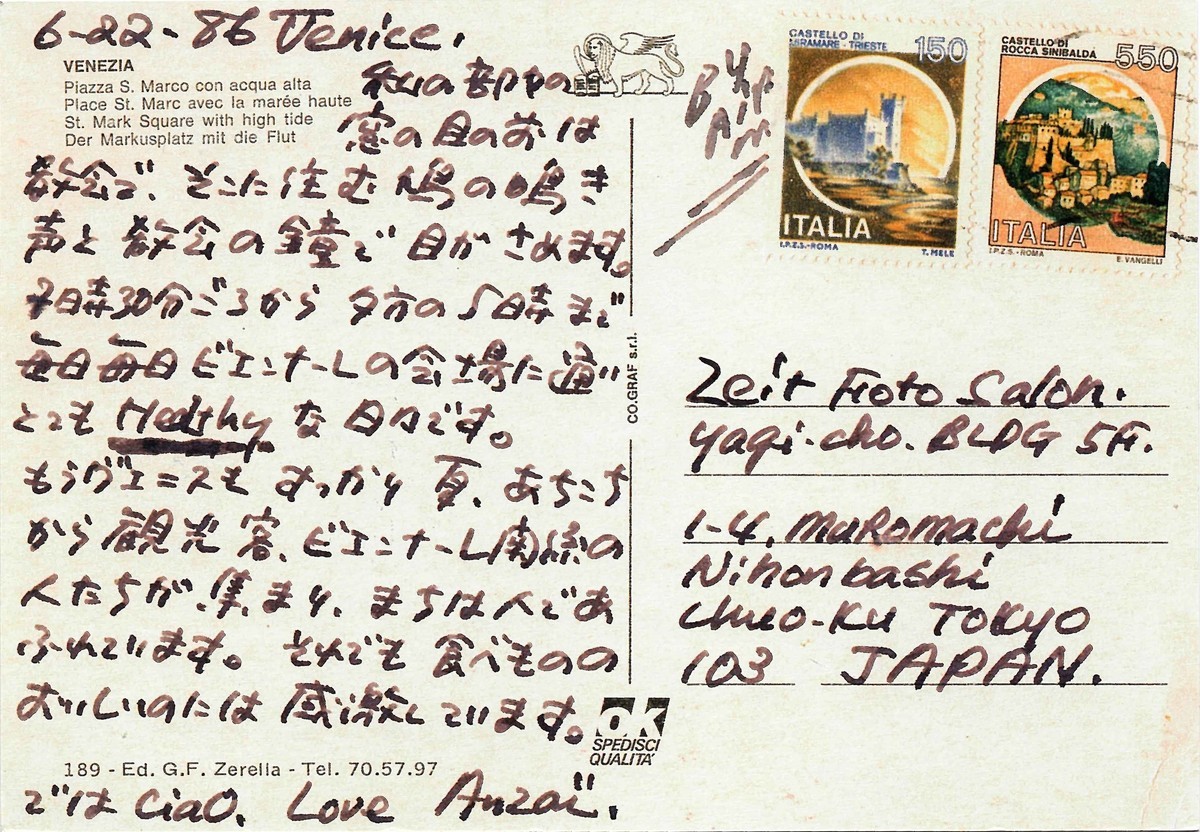 6-22-86 Venice.
VENEZIA
Piazza S. Marco con acqua alta
Place St. Marc avec la marée haute
St. Mark Square with high tide
Der Markusplatz mit die Flut
私の部やの
窓の目の前は
教会で、そこに住む鳩の鳴き
声と教会の鐘で目がさめます。
7時30分ごろから夕方の5時まで
毎日毎日ビエンナーレの会場に通い
とても Healthy な日々です。
もうヴェニスもすっかり夏、あちこち
から観光客、ビエンナーレ関係の
人たちが集まり、まちは人であ
ふれています。それでも食べものの
おいしいのには感激しています。
189 - Ed. G.F. Zerella - Tel. 70.57.97
では ciao. Love Anzaï.
CO.GRAF s.r.l.
OK
SPEDISCI
QUALITA'
By
Air
CASTELLO DI
MIRAMARE - TRIESTE
150
ITALIA
I.P.Z.S.-ROMA
T. MELE
CASTELLO DI
ROCCA SINIBALDA
550
ITALIA
I.P.Z.S.-ROMA
E. VANGELLI
Zeit Foto Salon.
Yagi-cho. BLDG 5F.
1-4, Muromachi
Nihonbashi
Chuo-Ku TOKYO
103 JAPAN.